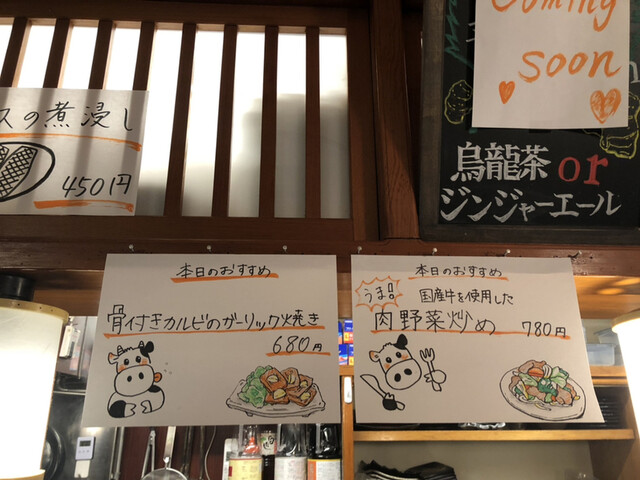 スの煮浸し
450円
Coming
soon
烏龍茶 or
ジンジャーエール
本日のおすすめ
骨付きカルビのガーリック焼き
680円
本日のおすすめ
うま!!
国産牛を使用した
肉野菜炒め 780円